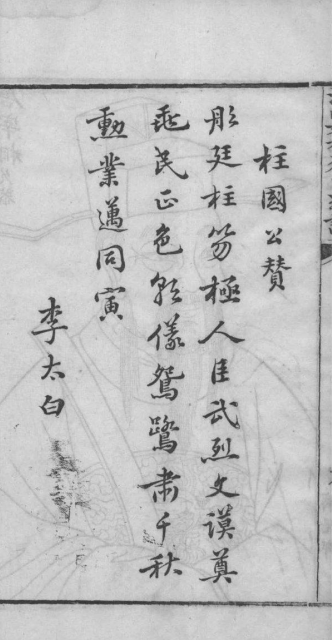 柱國公贊
彤廷柱笏極人臣武烈文謨奠
兆民正色朝儀鴛鷺肅千秋
勳業邁同寅
李太白